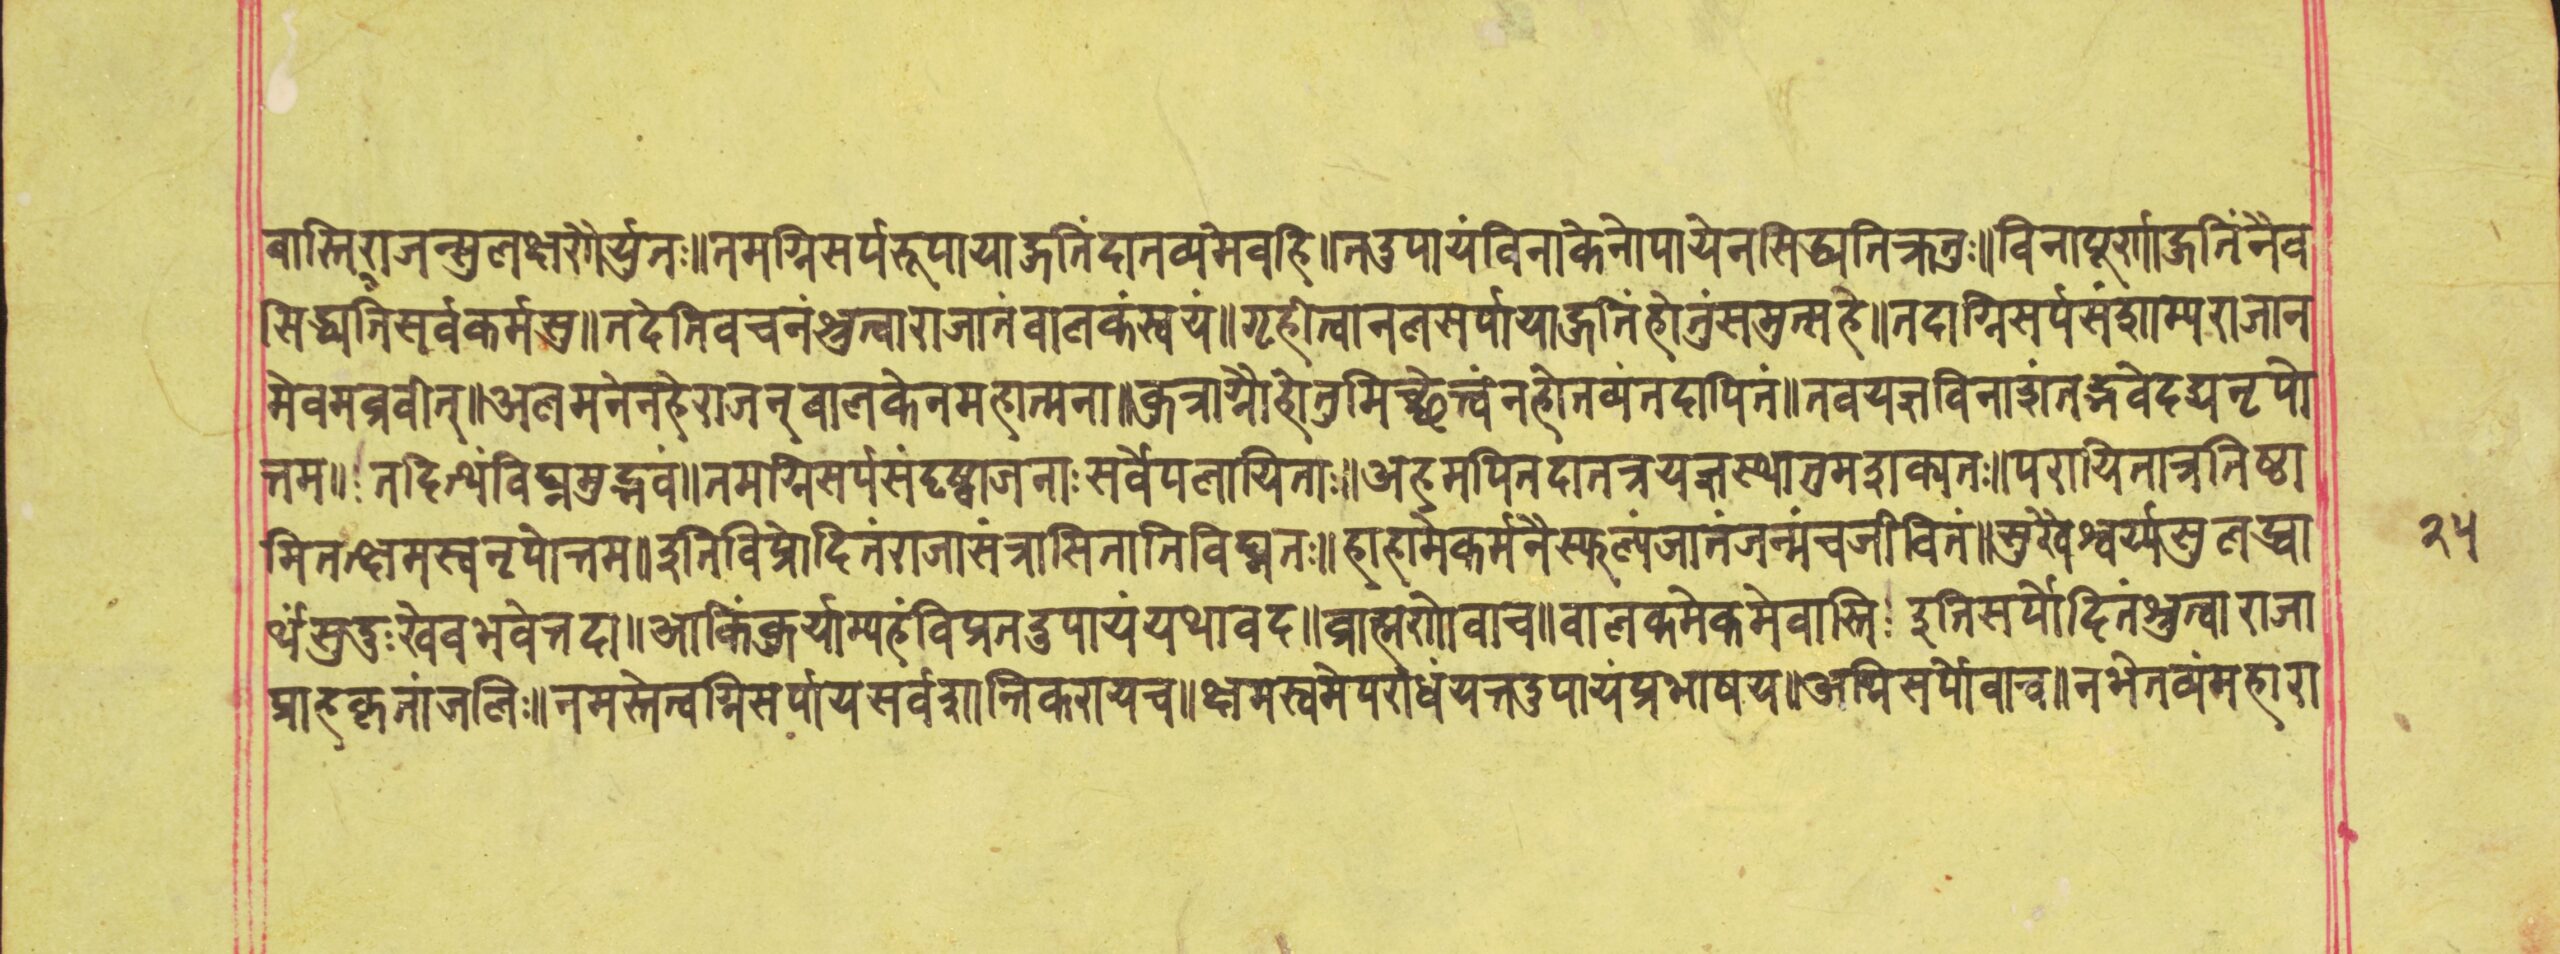 वास्तिराजन्सुलक्षणैर्युतः॥तमग्निसर्परूपायाहुतिंदातव्यमेवहि॥तदुपायंविनाकेनोपायेनसिद्ध्यतिक्रतुः॥विनापूर्णाहुतिंनैव
सिद्ध्यतिसर्वकर्मसु॥तदेतिवचनंश्रुत्वाराजातंबालकंस्वयं॥गृहीत्वानलसर्पायाहुतिंहोतुंसमुत्सहे॥तदाग्निसर्पसंज्ञाम्पराजान
मेवमब्रवीत्॥अलमनेनहेराजन्बालकेनमहात्मना॥कुत्राग्नौहोतुमिच्छेत्त्वंनहोतव्यंतदापितं॥तवयज्ञविनाशंतद्भवेदद्यनृपो
त्तम॥तदित्थंविघ्नमुद्भवं॥तमग्निसर्पसंदृष्ट्वाजनाःसर्वेपलायिताः॥अहमपितदातत्रयज्ञस्थातुमशक्यतः॥परायितान्नतिष्ठा
मितत्क्षमस्वनृपोत्तम॥इतिविप्रोदितंराजासंत्रासितातिविघ्नतः॥हाहामेकर्मनैस्फल्यंजातंजन्मंचजीवितं॥सुखैश्वर्य्यसुलब्धा
र्थंसुदुःखेवभवेत्तदा॥आकिंकुर्याम्यहंविप्रतदुपायंयथावद॥ब्राह्मणोवाच॥बालकमेकमेवास्ति इतिसर्पोदितंश्रुत्वाराजा
प्राहकृतांजलिः॥नमस्तेत्वग्निसर्पायसर्वशान्तिकरायच॥क्षमस्वमेपरोधंयत्तदुपायंप्रभाषय॥अग्निसर्पोवाच॥नभेतव्यंमहारा
२५